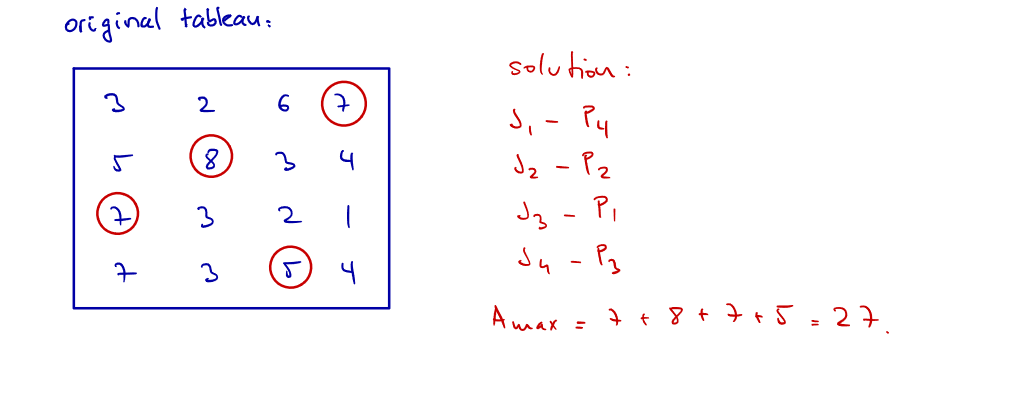 original tableau:
3 2 6 7
5 8 3 4
7 3 2 1
7 3 5 4
solution:
J1 - P4
J2 - P2
J3 - P1
J4 - P3
Amax = 7 + 8 + 7 + 5 = 27.